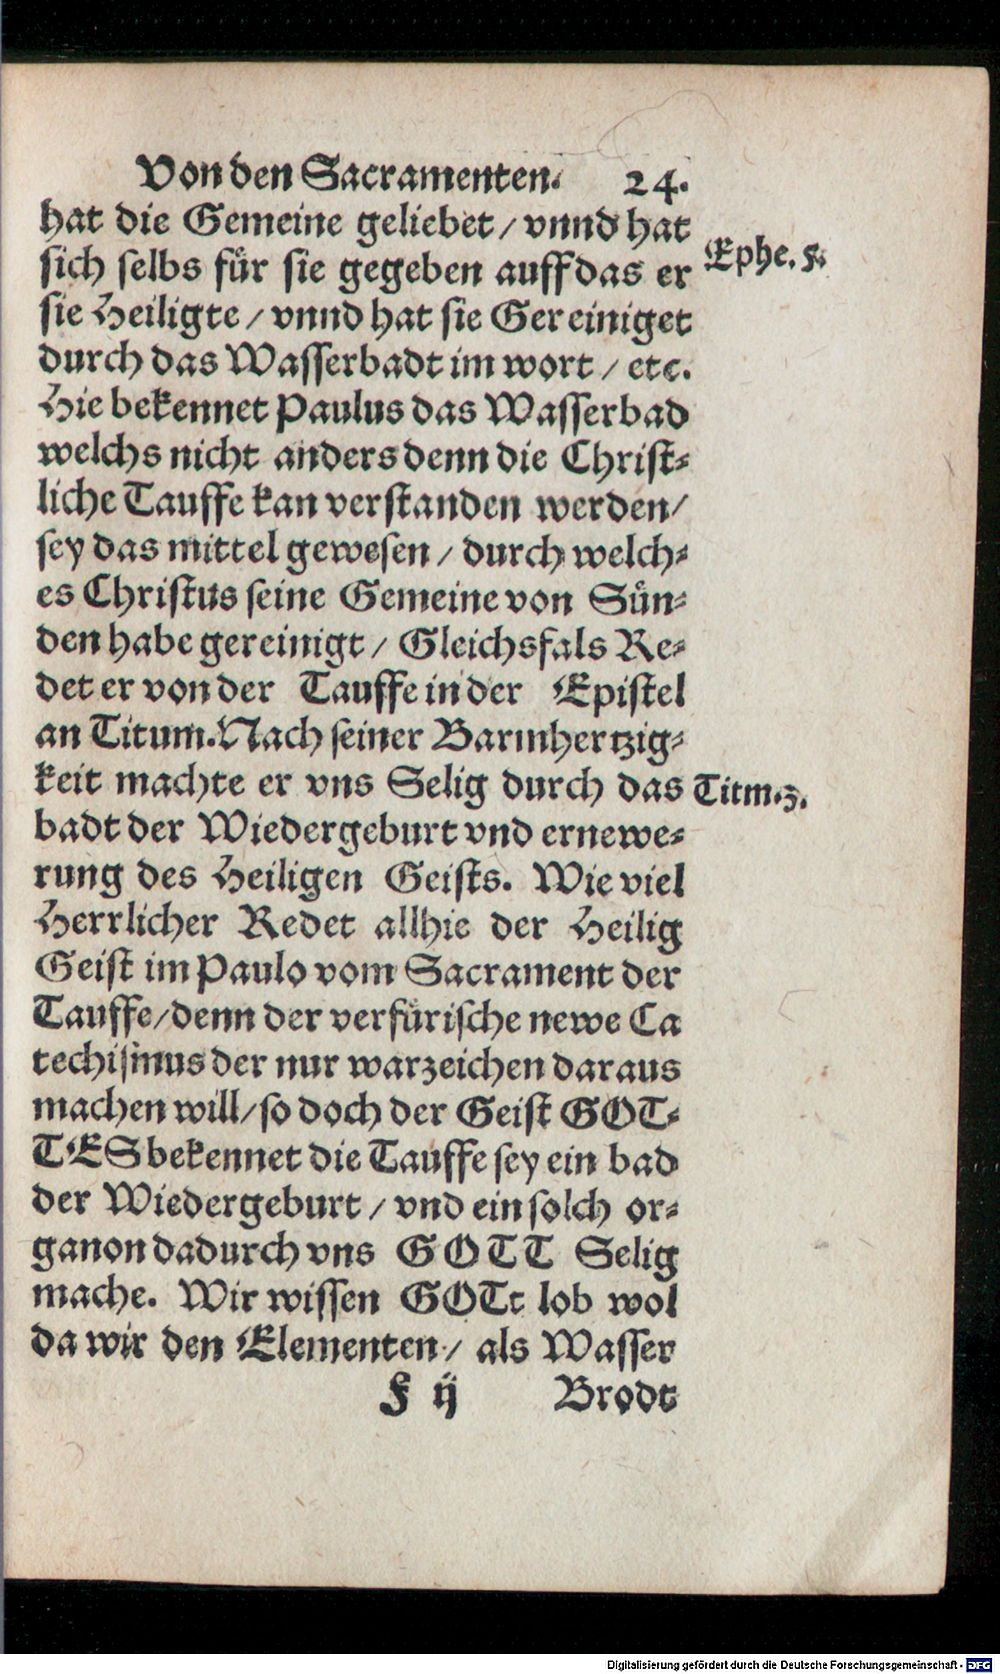 Von den Sacramenten. 24.
hat die Gemeine geliebet / vnnd hat
sich selbs für sie gegeben auff das er
Ephe. 5.
sie Heiligte / vnnd hat sie Gereiniget
durch das Wasserbadt im wort / etc.
Hie bekennet Paulus das Wasserbad
welchs nicht anders denn die Christ-
liche Tauffe kan verstanden werden /
sey das mittel gewesen / durch welch-
es Christus seine Gemeine von Sün-
den habe gereinigt / Gleichsfals Re-
det er von der Tauffe in der Epistel
an Titum. Nach seiner Barmhertzig-
keit machte er vns Selig durch das
Titm. 3.
badt der Wiedergeburt vnd ernewe-
rung des Heiligen Geists. Wie viel
Herrlicher Redet allhie der Heilig
Geist im Paulo vom Sacrament der
Tauffe / denn der verfürische newe Ca
techismus der nur warzeichen daraus
machen will / so doch der Geist GOT-
TES bekennet die Tauffe sey ein bad
der Wiedergeburt / vnd ein solch or-
ganon dadurch vns GOTT Selig
mache. Wir wissen GOTt lob wol
da wir den Elementen / als Wasser
F ij Brodt
Digitalisierung gefördert durch die Deutsche Forschungsgemeinschaft - DFG